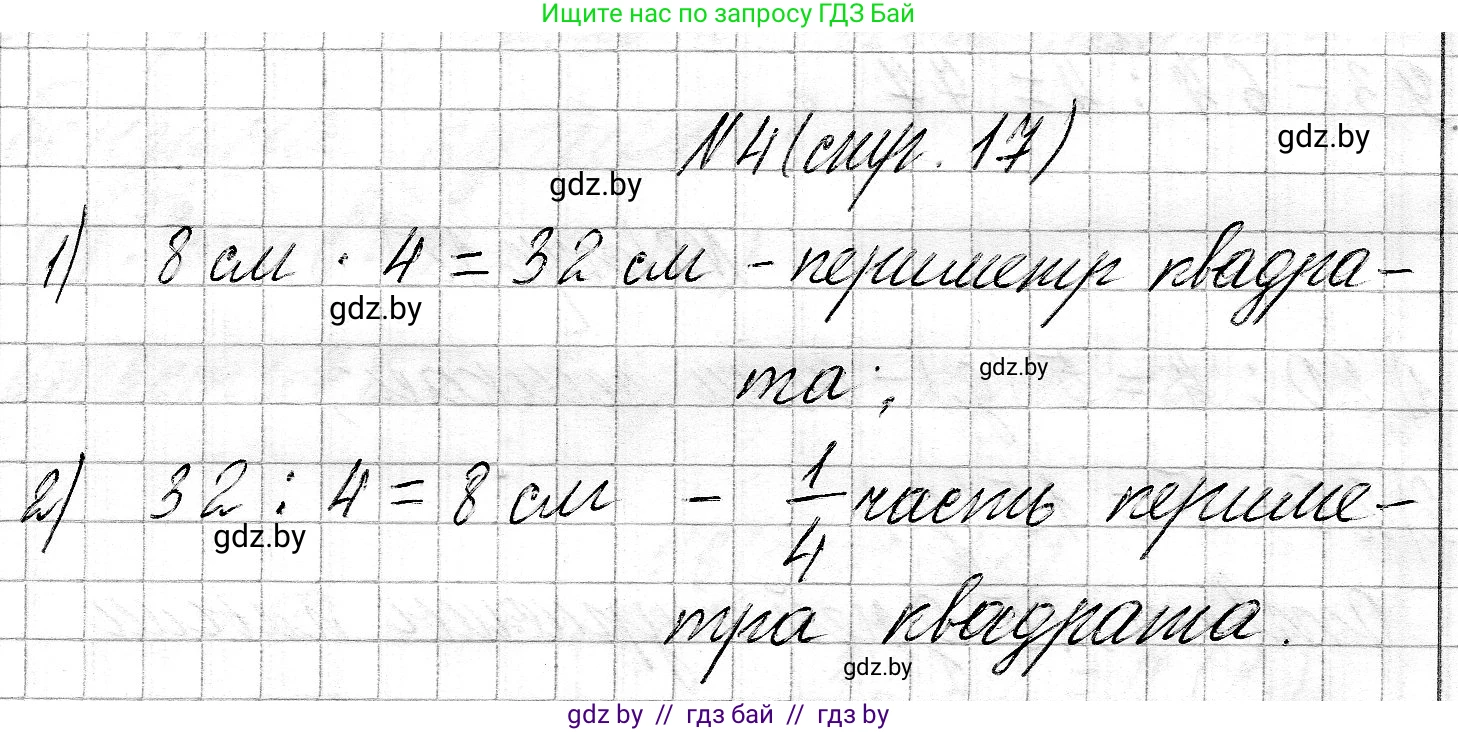 Ищите нас по запросу ГДЗ Бай
№4 (стр. 17)
gdz.by
gdz.by
1) 8 см · 4 = 32 см - периметр квадра-
gdz.by
та;
gdz.by
2) 32 : 4 = 8 см - 1/4 часть периме-
gdz.by
тра квадрата.
gdz.by
gdz by // гдз бай // гдз by